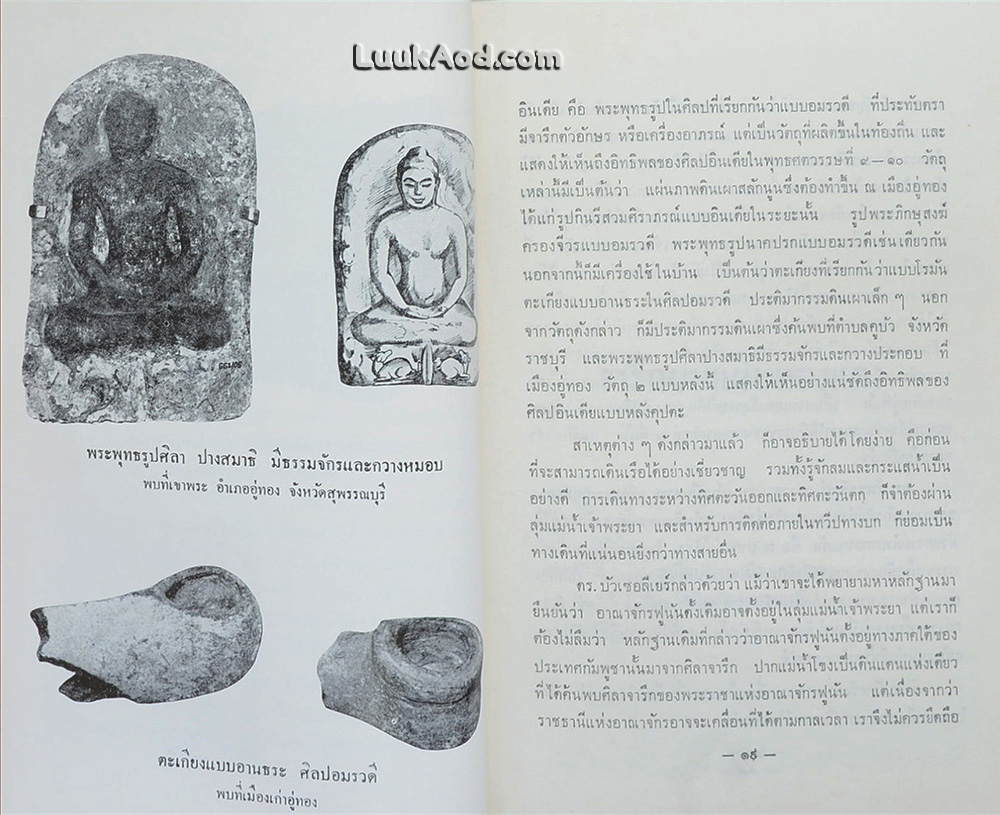 LuukAod.com
พระพุทธรูปศิลา ปางสมาธิ มีธรรมจักรและกวางหมอบ
พบที่เขาพระ อำเภออู่ทอง จังหวัดสุพรรณบุรี
ตะเกียงแบบอานธระ ศิลปอมรวดี
พบที่เมืองเก่าอู่ทอง
อินเดีย คือ พระพุทธรูปในศิลปที่เรียกกันว่าแบบอมรวดี ที่ประทับตรา
มีจารึกตัวอักษร หรือเครื่องอาภรณ์ แต่เป็นวัตถุที่ผลิตขึ้นในท้องถิ่น และ
แสดงให้เห็นถึงอิทธิพลของศิลปอินเดียในพุทธศตวรรษที่ ๙—๑๐ วัตถุ
เหล่านี้มีเป็นต้นว่า แผ่นภาพดินเผาสลักนูนซึ่งต้องทำขึ้น ณ เมืองอู่ทอง
ได้แก่รูปกินรีสวมศิราภรณ์แบบอินเดียในระยะนั้น รูปพระภิกษุสงฆ์
ครองจีวรแบบอมรวดี พระพุทธรูปนาคปรกแบบอมรวดีเช่นเดียวกัน
นอกจากนี้ก็มีเครื่องใช้ในบ้าน เป็นต้นว่าตะเกียงที่เรียกกันว่าแบบโรมัน
ตะเกียงแบบอานธระในศิลปอมรวดี ประติมากรรมดินเผาเล็ก ๆ นอก
จากวัตถุดังกล่าว ก็มีประติมากรรมดินเผาซึ่งค้นพบที่ตำบลคูบัว จังหวัด
ราชบุรี และพระพุทธรูปศิลาปางสมาธิมีธรรมจักรและกวางประกอบ ที่
เมืองอู่ทอง วัตถุ ๒ แบบหลังนี้ แสดงให้เห็นอย่างแน่ชัดถึงอิทธิพลของ
ศิลปอินเดียแบบหลังคุปตะ
สาเหตุต่าง ๆ ดังกล่าวมาแล้ว ก็อาจอธิบายได้โดยง่าย คือก่อน
ที่จะสามารถเดินเรือได้อย่างเชี่ยวชาญ รวมทั้งรู้จักลมและกระแสน้ำเป็น
อย่างดี การเดินทางระหว่างทิศตะวันออกและทิศตะวันตก ก็จำต้องผ่าน
ลุ่มแม่น้ำเจ้าพระยา และสำหรับการติดต่อภายในทวีปทางบก ก็ย่อมเป็น
ทางเดินที่แน่นอนยิ่งกว่าทางสายอื่น
ดร. บัวเซอลีเยร์กล่าวด้วยว่า แม้ว่าเขาจะได้พยายามหาหลักฐานมา
ยืนยันว่า อาณาจักรฟูนันดั้งเดิมอาจตั้งอยู่ในลุ่มแม่น้ำเจ้าพระยา แต่เราก็
ต้องไม่ลืมว่า หลักฐานเดิมที่กล่าวว่าอาณาจักรฟูนันตั้งอยู่ทางภาคใต้ของ
ประเทศกัมพูชานั้นมาจากศิลาจารึก ปากแม่น้ำโขงเป็นดินแดนแห่งเดียว
ที่ได้ค้นพบศิลาจารึกของพระราชาแห่งอาณาจักรฟูนัน แต่เนื่องจากว่า
ราชธานีแห่งอาณาจักรอาจจะเคลื่อนที่ได้ตามกาลเวลา เราจึงไม่ควรยึดถือ
— ๑๙ —